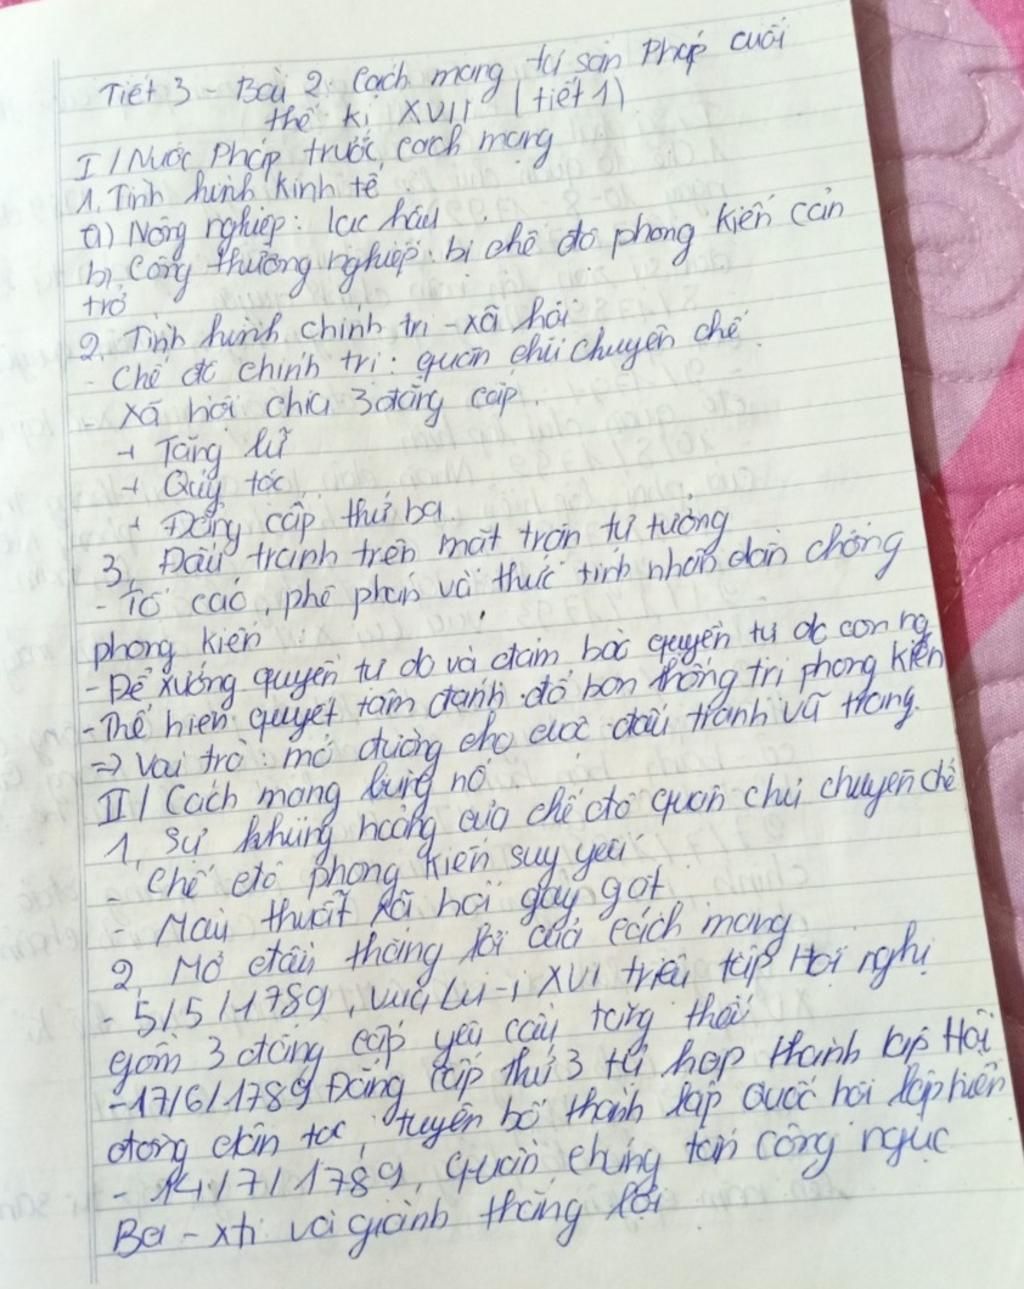 Tiết 3 - Bài 2: Cách mạng tư sản Pháp cuối
thế kỉ XVII (tiết 1)
I / Nước Pháp trước cách mạng
1. Tình hình kinh tế
a) Nông nghiệp: lạc hậu
b) Công thương nghiệp: bị chế độ phong kiến cản
trở
2. Tình hình chính trị - xã hội
- Chế độ chính trị: quân chủ chuyên chế.
- Xã hội chia 3 đẳng cấp.
+ Tăng lữ
+ Quý tộc
+ Đẳng cấp thứ ba
3, Đấu tranh trên mặt trận tư tưởng
- Tố cáo, phê phán và thức tỉnh nhân dân chống
phong kiến
- Đề xướng quyền tự do và đảm bảo quyền tự do con ng
- Thể hiện quyết tâm đánh đổ bọn thống trị phong kiến
=> Vai trò: mở đường cho cuộc đấu tranh vũ trang.
II / Cách mạng bùng nổ
1, Sự khủng hoảng của chế độ quân chủ chuyên chế
- Chế độ phong kiến suy yếu
- Mâu thuẫn xã hội gay gắt
2, Mở đầu thắng lợi của cách mạng
- 5/5/1789, vua Lu-i XVI triệu tập Hội nghị
gồm 3 đẳng cấp yêu cầu tăng thuế
- 17/6/1789 Đẳng cấp thứ 3 tự họp thành lập Hội
đồng dân tộc, tuyên bố thành lập Quốc hội lập hiến
- 14/7/1789, quần chúng tấn công ngục
Ba-xti và giành thắng lợi